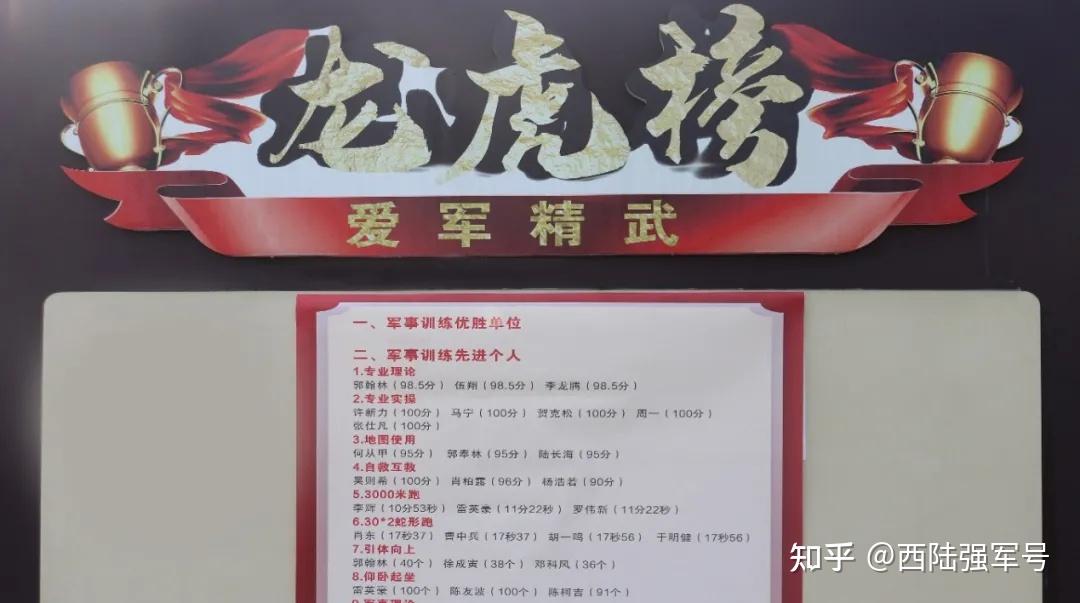 龙虎榜
爱军精武
一、军事训练优胜单位
二、军事训练先进个人
1.专业理论
郭翰林（98.5分） 伍翔（98.5分） 李龙腾（98.5分）
2.专业实操
许新力（100分） 马宁（100分） 贺克松（100分） 周一（100分）
张仕凡（100分）
3.地图使用
何从甲（95分） 郭奉林（95分） 陆长海（95分）
4.自救互救
吴则希（100分） 肖柏露（96分） 杨浩若（90分）
5.3000米跑
李辉（10分53秒） 雷英豪（11分22秒） 罗伟新（11分22秒）
6.30*2蛇形跑
肖东（17秒37） 曹中兵（17秒37） 胡一鸣（17秒56） 于明健（17秒56）
7.引体向上
郭翰林（40个） 徐成寅（38个） 邓科风（36个）
8.仰卧起坐
雷英豪（100个） 陈友波（100个） 陈柯吉（91个）
9.军事理论
知乎 @西陆强军号